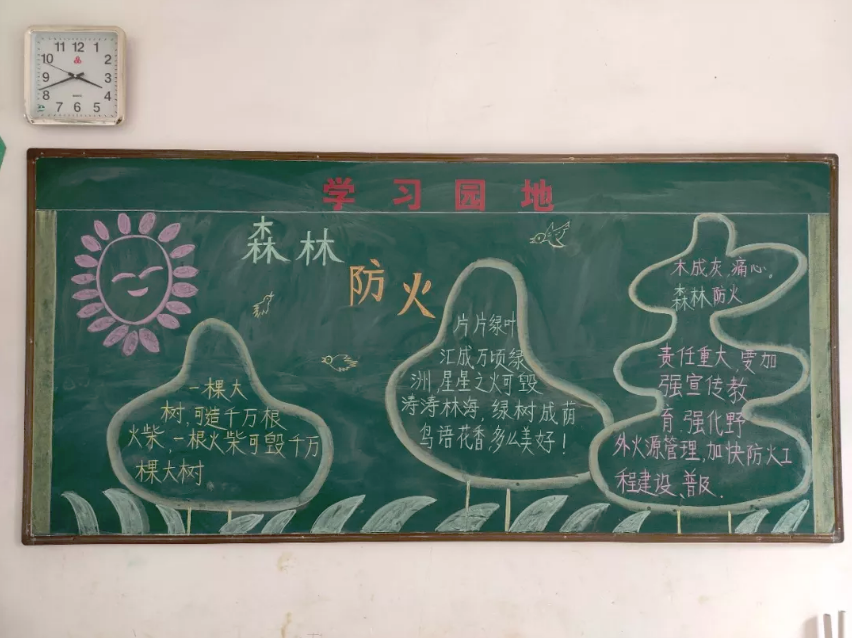 11 12 1
10 2
9 3
8 4
7 6 5
学习园地
森林
防火
一棵大
树,可造千万根
火柴,一根火柴可毁千万
棵大树
片片绿叶
汇成万顷绿
洲,星星之火可毁
涛涛林海,绿树成荫
鸟语花香,多么美好!
木成灰,痛心。
森林防火
责任重大,要加
强宣传教
育,强化野
外火源管理,加快防火工
程建设、普及.